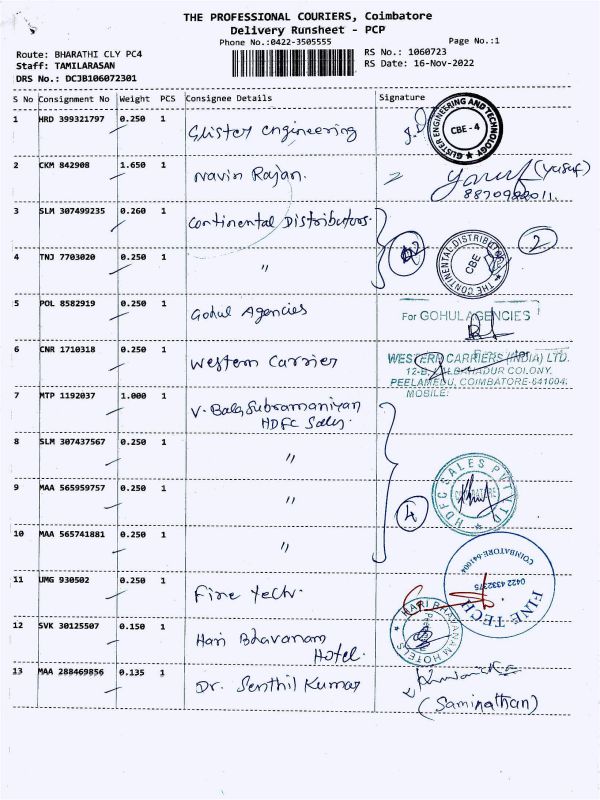 THE PROFESSIONAL COURIERS, Coimbatore
Delivery Runsheet - PCP
Phone No.:0422-3505555
Page No.:1
Route: BHARATHI CLY PC4
RS No.: 1060723
Staff: TAMILARASAN
RS Date: 16-Nov-2022
DRS No.: DCJB106072301
S No Consignment No Weight PCS Consignee Details Signature
1 HRD 399321797 0.250 1 Glister engineering
GLISTER ENGINEERING AND TECHNOLOGY
CBE - 4
2 CKM 842908 1.650 1 Navin Rajan. (Yusuf)
3 SLM 307499235 0.260 1 Continental Distributors.
4 TNJ 7703020 0.250 1 "
THE CONTINENTAL DISTRIBUTORS
CBE
2
5 POL 8582919 0.250 1 Gohul Agencies
For GOHUL AGENCIES
6 CNR 1710318 0.250 1 Western Carrier
WESTERN CARRIERS (INDIA) LTD.
COLONY,
PEELAMEDU, COIMBATORE-641004.
MOBILE:
7 MTP 1192037 1.000 1 V. Bala Subramaniyan
HDFC Sales.
8 SLM 307437567 0.250 1 "
9 MAA 565959757 0.250 1 "
HDFC SALES PVT LTD
COIMBATORE
4
10 MAA 565741881 0.250 1 "
11 UMG 930502 0.250 1 Fine tech.
FINE-TECH
COIMBATORE-641004
0422 4332375
12 SVK 30125507 0.150 1 Hari Bhavanam
Hotel.
HARI BHAVANAM HOTELS
13 MAA 288469856 0.135 1 Dr. Senthil Kumar
(Saminathan)